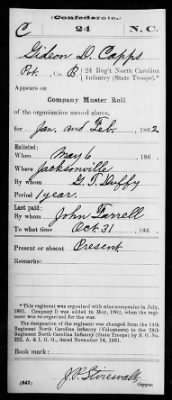 (Confederate.)
C 24 N. C.
Gideon D. Capps
Pvt., Co. B, 24 Reg't North Carolina
Infantry (State Troops).*
Appears on
Company Muster Roll
of the organization named above,
for Jan. and Feb., 1862
Enlisted:
When May 6, 186
Where Jacksonville
By whom G. T. Duffy
Period 1 year.
Last paid:
By whom John Farrell
To what time Oct 31, 186
Present or absent Present
*This regiment was organized with nine companies in July,
1861. Company D was added in May, 1862, when the regi-
ment was re-organized for the war.
The designation of the regiment was changed from the 14th
Regiment North Carolina Infantry (Volunteers) to the 24th
Regiment North Carolina Infantry (State Troops) by S. O. No.
222, A. & I. G. O., dated November 14, 1861.
Book mark:
(642) J. P. Stirewalt
Copyist.